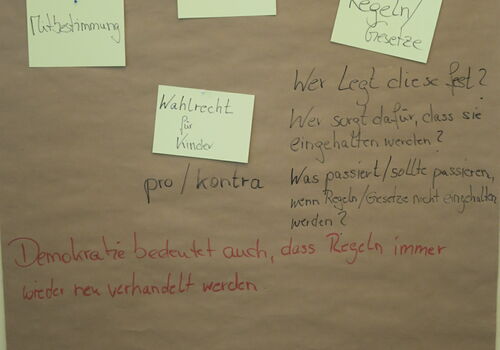 Mitbestimmung
Regeln/
Gesetze
Wer legt diese fest?
Wer sorgt dafür, dass sie
eingehalten werden?
Was passiert/sollte passieren,
wenn Regeln/Gesetze nicht eingehalten
werden?
Wahlrecht
für
Kinder
pro/kontra
Demokratie bedeutet auch, dass Regeln immer
wieder neu verhandelt werden